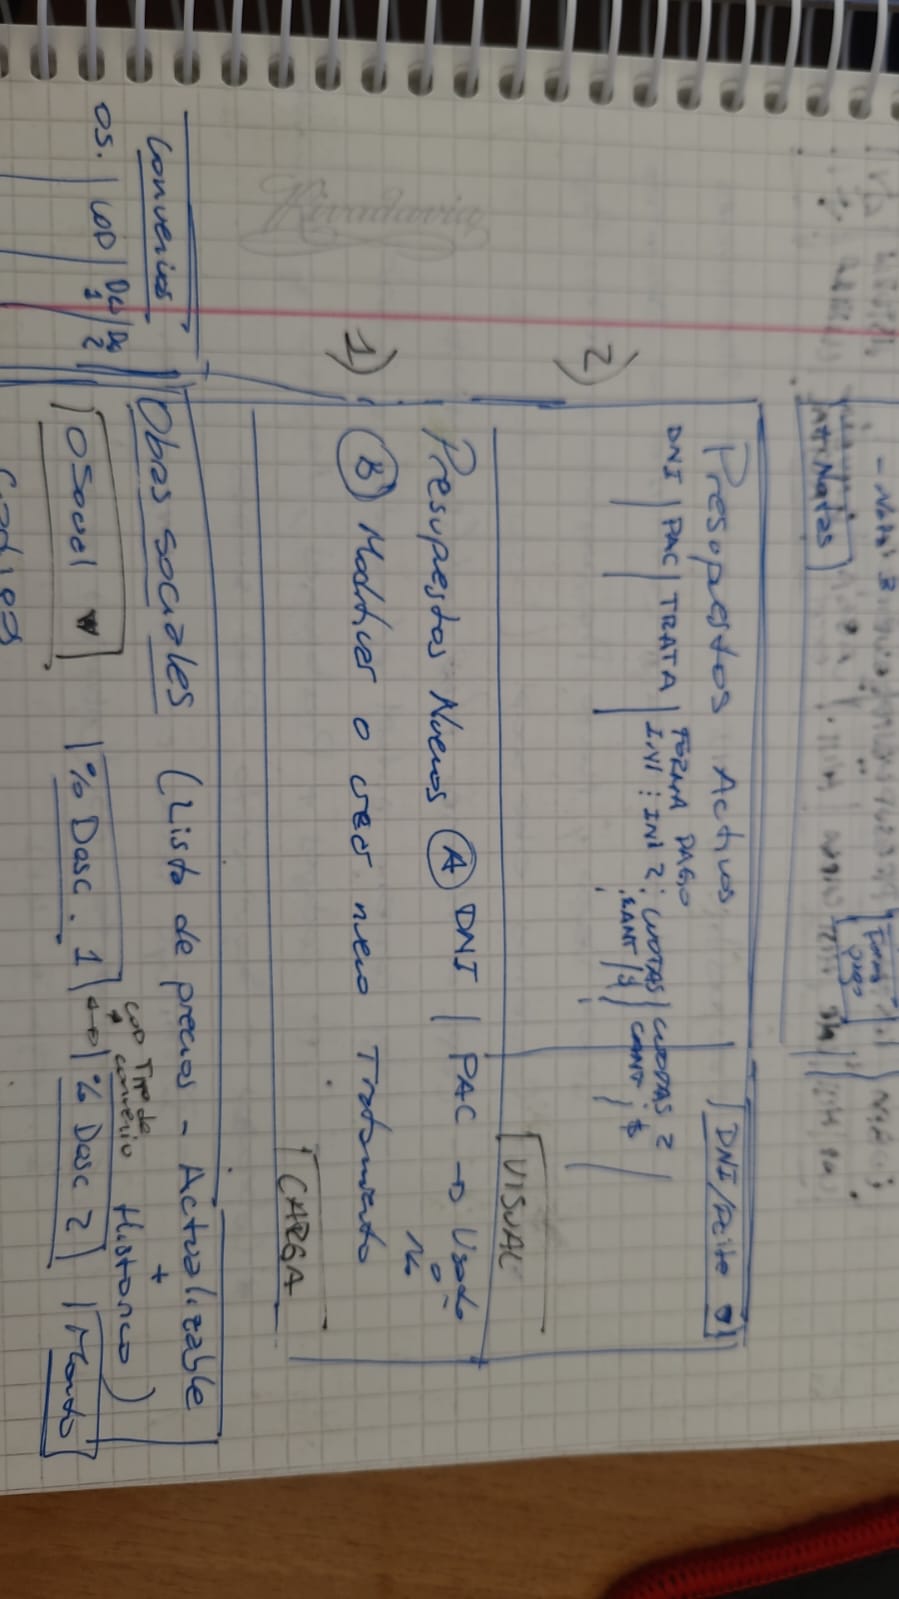 - Nota 3
Forma
pago
Notas
Presupuestos Activos
DNI/Pcite
DNI | PAC | TRATA | FORMA PAGO
INI : INI 2 : CUOTAS | CUOTAS 2
CANT | $ CANT ; $
2)
VISUAL
Presupuestos Nuevos A DNI | PAC → Usado
o
No
1) B Modificar o crear nuevo Tratamiento
CARGA
Rivadavia
Convenios
OS. | COD | Dc 1 | Dc 2
Obras sociales (Lista de precios - Actualizable
+
Histórico)
COD Tipo de
convenio
OSocial
% Desc. 1
% Desc 2
Monto
Codigos